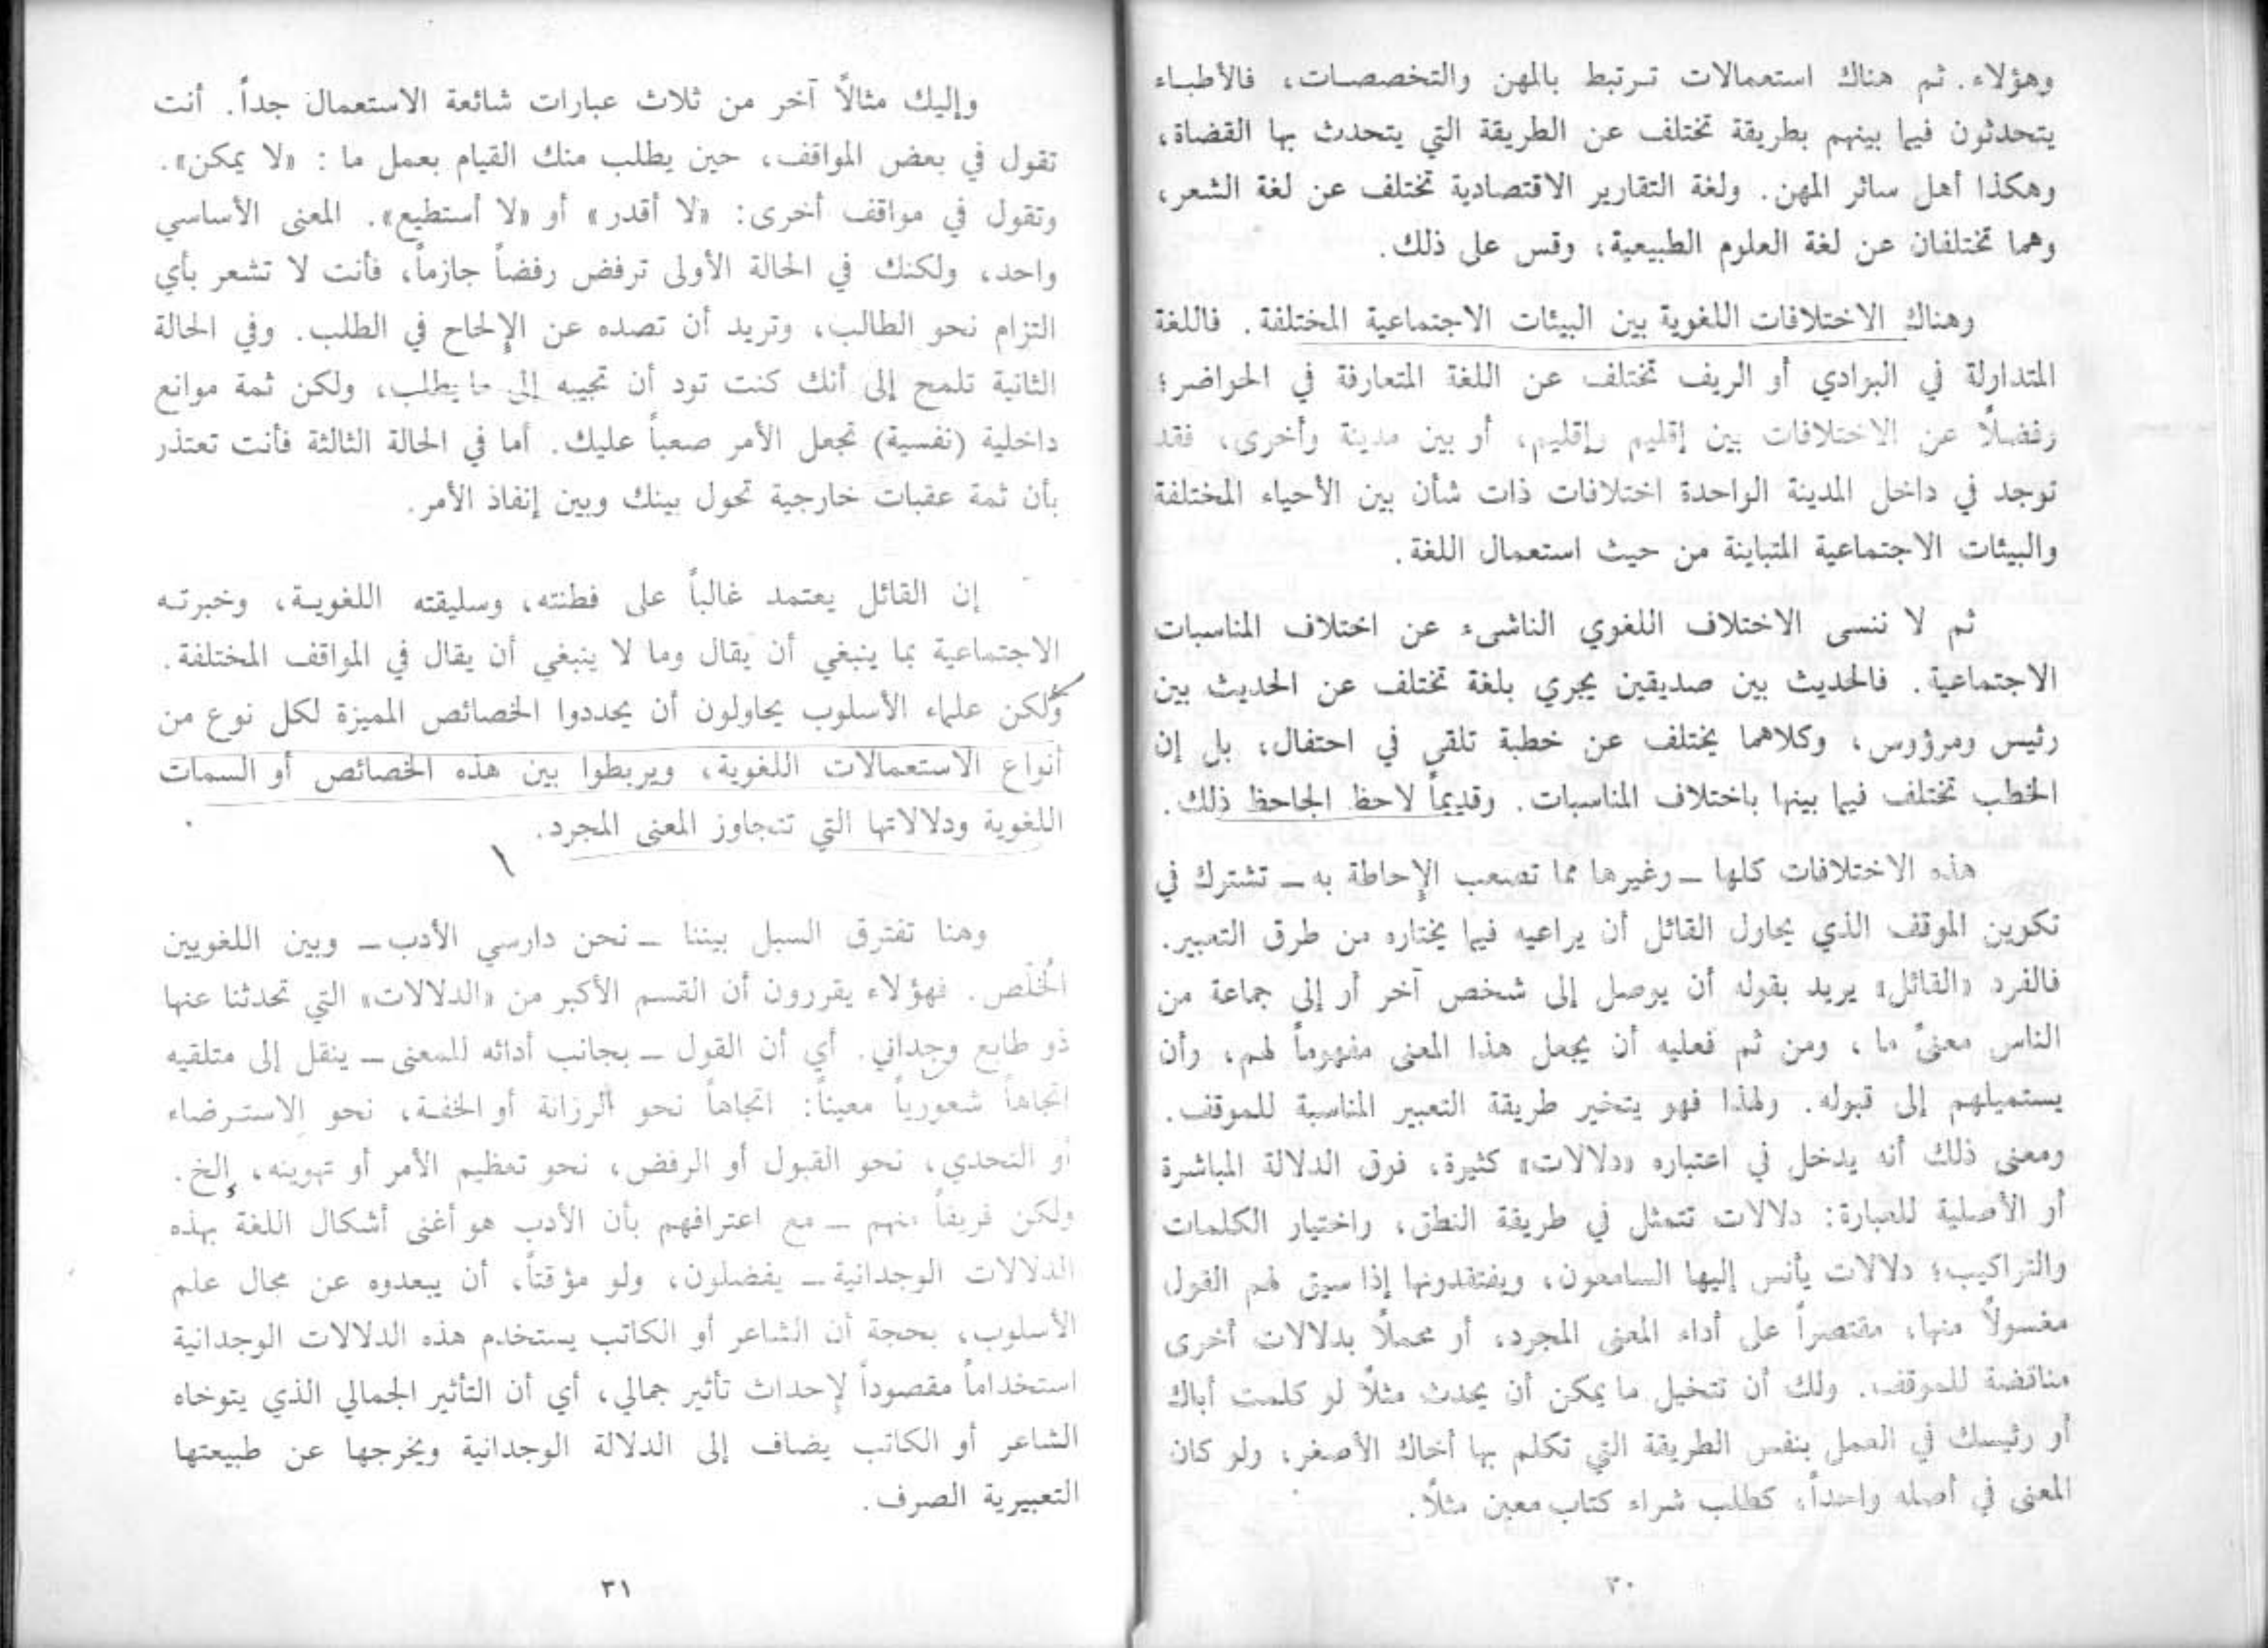 وهؤلاء. ثم هناك استعمالات ترتبط بالمهن والتخصصات، فالأطباء
يتحدثون فيما بينهم بطريقة تختلف عن الطريقة التي يتحدث بها القضاة،
وهكذا أهل سائر المهن. ولغة التقارير الاقتصادية تختلف عن لغة الشعر،
وهما تختلفان عن لغة العلوم الطبيعية، وقس على ذلك.
وهناك الاختلافات اللغوية بين البيئات الاجتماعية المختلفة. فاللغة
المتداولة في البوادي أو الريف تختلف عن اللغة المتعارفة في الحواضر؛
وفضلاً عن الاختلافات بين إقليم وإقليم، أو بين مدينة وأخرى، فقد
توجد في داخل المدينة الواحدة اختلافات ذات شأن بين الأحياء المختلفة
والبيئات الاجتماعية المتباينة من حيث استعمال اللغة.
ثم لا ننسى الاختلاف اللغوي الناشىء عن اختلاف المناسبات
الاجتماعية. فالحديث بين صديقين يجري بلغة تختلف عن الحديث بين
رئيس ومرؤوس، وكلاهما يختلف عن خطبة تلقى في احتفال، بل إن
الخطب تختلف فيما بينها باختلاف المناسبات. وقديماً لاحظ الجاحظ ذلك.
هذه الاختلافات كلها ــ وغيرها مما تصعب الإحاطة به ــ تشترك في
تكوين الموقف الذي يحاول القائل أن يراعيه فيما يختاره من طرق التعبير.
فالفرد «القائل» يريد بقوله أن يوصل إلى شخص آخر أو إلى جماعة من
الناس معنىً ما، ومن ثم فعليه أن يجعل هذا المعنى مفهوماً لهم، وأن
يستميلهم إلى قبوله. ولهذا فهو يتخير طريقة التعبير المناسبة للموقف.
ومعنى ذلك أنه يدخل في اعتباره «دلالات» كثيرة، فوق الدلالة المباشرة
أو الأصلية للعبارة: دلالات تتمثل في طريقة النطق، واختيار الكلمات
والتراكيب؛ دلالات يأنس إليها السامعون، ويفتقدونها إذا سيق لهم القول
مغسولاً منها، مقتصراً على أداء المعنى المجرد، أو محملاً بدلالات أخرى
مناقضة للموقف. ولك أن تتخيل ما يمكن أن يحدث مثلاً لو كلمت أباك
أو رئيسك في العمل بنفس الطريقة التي تكلم بها أخاك الأصغر، ولو كان
المعنى في أصله واحداً، كطلب شراء كتاب معين مثلاً.
٣٠
وإليك مثالاً آخر من ثلاث عبارات شائعة الاستعمال جداً. أنت
تقول في بعض المواقف، حين يطلب منك القيام بعمل ما: «لا يمكن».
وتقول في مواقف أخرى: «لا أقدر» أو «لا أستطيع». المعنى الأساسي
واحد، ولكنك في الحالة الأولى ترفض رفضاً جازماً، فأنت لا تشعر بأي
التزام نحو الطالب، وتريد أن تصده عن الإلحاح في الطلب. وفي الحالة
الثانية تلمح إلى أنك كنت تود أن تجيبه إلى ما يطلب، ولكن ثمة موانع
داخلية (نفسية) تجعل الأمر صعباً عليك. أما في الحالة الثالثة فأنت تعتذر
بأن ثمة عقبات خارجية تحول بينك وبين إنفاذ الأمر.
إن القائل يعتمد غالباً على فطنته، وسليقته اللغوية، وخبرته
الاجتماعية بما ينبغي أن يقال وما لا ينبغي أن يقال في المواقف المختلفة.
ولكن علماء الأسلوب يحاولون أن يحددوا الخصائص المميزة لكل نوع من
أنواع الاستعمالات اللغوية، ويربطوا بين هذه الخصائص أو السمات
اللغوية ودلالاتها التي تتجاوز المعنى المجرد.
وهنا تفترق السبل بيننا ــ نحن دارسي الأدب ــ وبين اللغويين
الخُلَّص. فهؤلاء يقررون أن القسم الأكبر من «الدلالات» التي تحدثنا عنها
ذو طابع وجداني. أي أن القول ــ بجانب أدائه للمعنى ــ ينقل إلى متلقيه
اتجاهاً شعورياً معيناً: اتجاهاً نحو الرزانة أو الخفة، نحو الاسترضاء
أو التحدي، نحو القبول أو الرفض، نحو تعظيم الأمر أو تهوينه، إلخ.
ولكن فريقاً منهم ــ مع اعترافهم بأن الأدب هو أغنى أشكال اللغة بهذه
الدلالات الوجدانية ــ يفضلون، ولو مؤقتاً، أن يبعدوه عن مجال علم
الأسلوب، بحجة أن الشاعر أو الكاتب يستخدم هذه الدلالات الوجدانية
استخداماً مقصوداً لإحداث تأثير جمالي، أي أن التأثير الجمالي الذي يتوخاه
الشاعر أو الكاتب يضاف إلى الدلالة الوجدانية ويخرجها عن طبيعتها
التعبيرية الصرف.
٣١